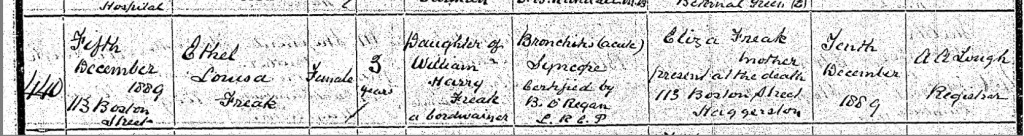 Hospital
Bethnal Green
440
Fifth
December
1889
113 Boston
Street
Ethel
Louisa
Freak
Female
3
years
Daughter of
William
Harry
Freak
a Cordwainer
Bronchitis (acute)
Syncope
Certified by
B. O'Regan
L. R. C. P
Eliza Freak
mother
present at the death
113 Boston Street
Haggerston
Tenth
December
1889
A A Lough
Registrar